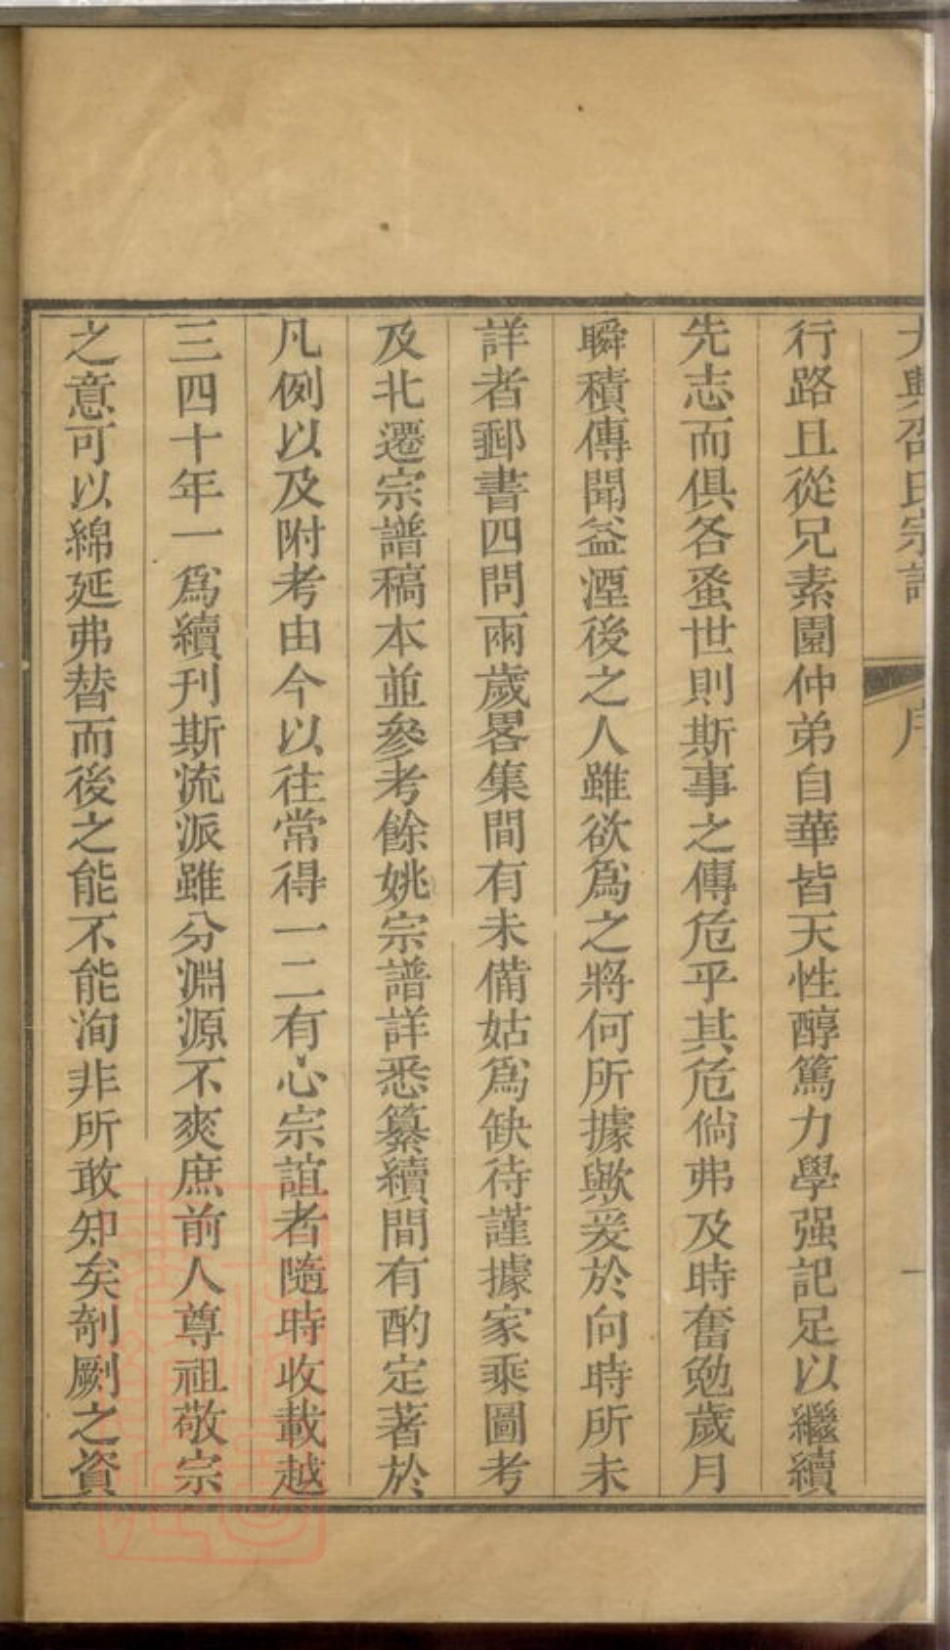 大興邵氏宗譜 序 一
行路且從兄素園仲弟自華皆天性醇篤力學强記足以繼續
先志而俱各蚤世則斯事之傳危乎其危倘弗及時奮勉歲月
瞬積傳聞益湮後之人雖欲爲之將何所據歟爰於向時所未
詳者郵書四問兩歲畧集間有未備姑爲缺待謹據家乘圖考
及北遷宗譜稿本並參考餘姚宗譜詳悉纂續間有酌定著於
凡例以及附考由今以往常得一二有心宗誼者隨時收載越
三四十年一爲續刊斯流派雖分淵源不爽庶前人尊祖敬宗
之意可以綿延弗替而後之能不能洵非所敢知矣剞劂之資